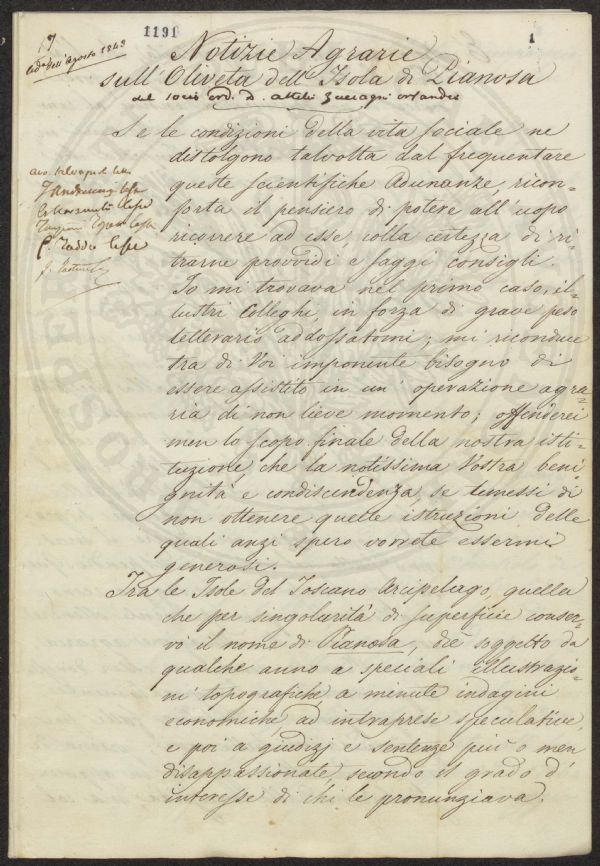 7
1191
1
Ad.ª dell' Agosto 1843
Notizie Agrarie
sull'Oliveta dell'Isola di Pianosa
del socio ord. D. Attilio Zuccagni Orlandini
Se le condizioni della vita sociale ne
distolgono talvolta dal frequentare
queste scientifiche Adunanze, ricon-
forta il pensiero di potere all'uopo
ricorrere ad esse, colla certezza di ri-
trarne provvidi e saggi consigli.
Io mi trovava nel primo caso, il-
lustri Colleghi, in forza di grave peso
letterario addossatomi; mi riconduce
tra di Voi imponente bisogno di
essere assistito in un' operazione agra-
ria di non lieve momento; offenderei
men lo scopo finale della nostra isti-
tuzione, che la notissima Vostra beni-
gnità, e condiscendenza, se temessi di
non ottenere quelle istruzioni delle
quali anzi spero vorrete essermi
generosi.
Tra le Isole del Toscano Arcipelago, quella
che per singolarità di superficie conser-
vò il nome di Pianosa, diè soggetto da
qualche anno a speciali illustrazio-
ni topografiche a minute indagini
economiche, ad intraprese speculative,
e poi a giudizj e sentenze più o men
disappassionate, secondo il grado d'
interesse di chi le pronunziava.